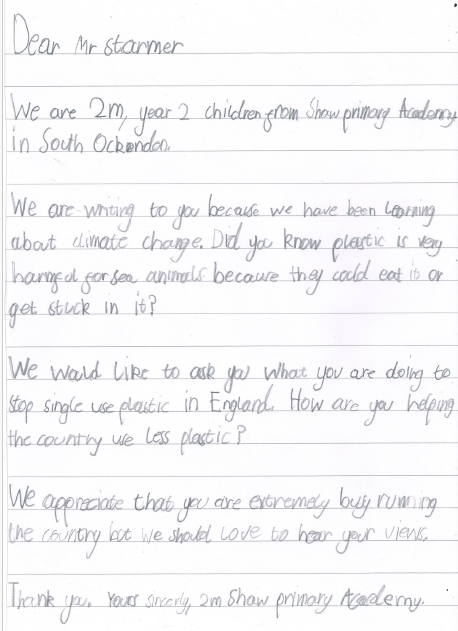 Dear Mr Starmer
We are 2m, year 2 children from Shaw primary Academy
in South Ockendon.
We are writing to you because we have been learning
about climate change. Did you know plastic is very
harmful for sea animals because they could eat it or
get stuck in it?
We would like to ask you what you are doing to
stop single use plastic in England. How are you helping
the country use less plastic?
We appreciate that you are extremely busy running
the country but we should love to hear your views.
Thank you. Yours sincerly, 2m Shaw primary Academy.